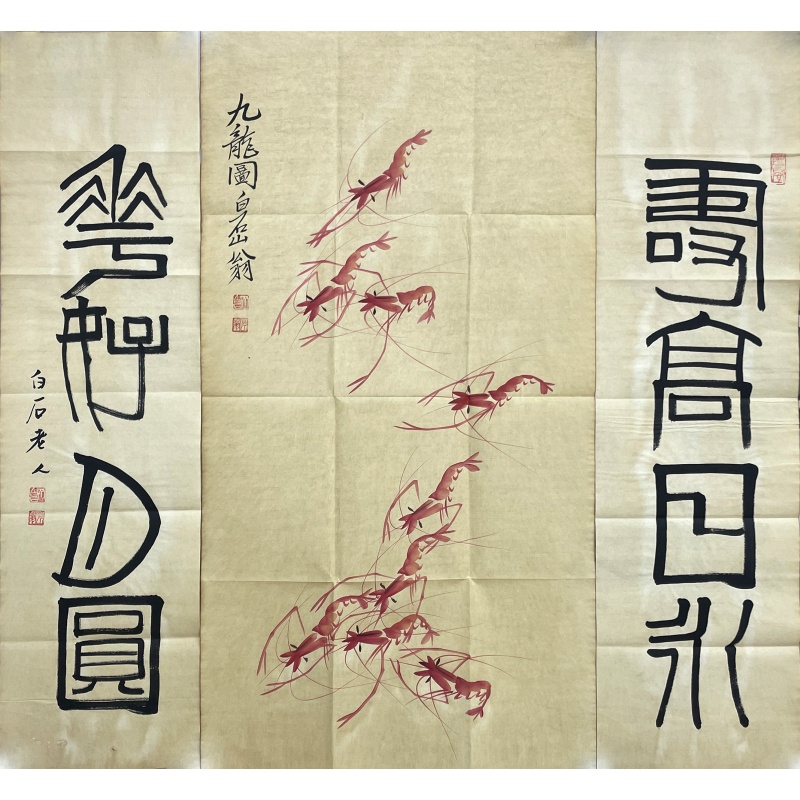 壽高日永
九龍圖白石山翁
花好月圓
白石老人